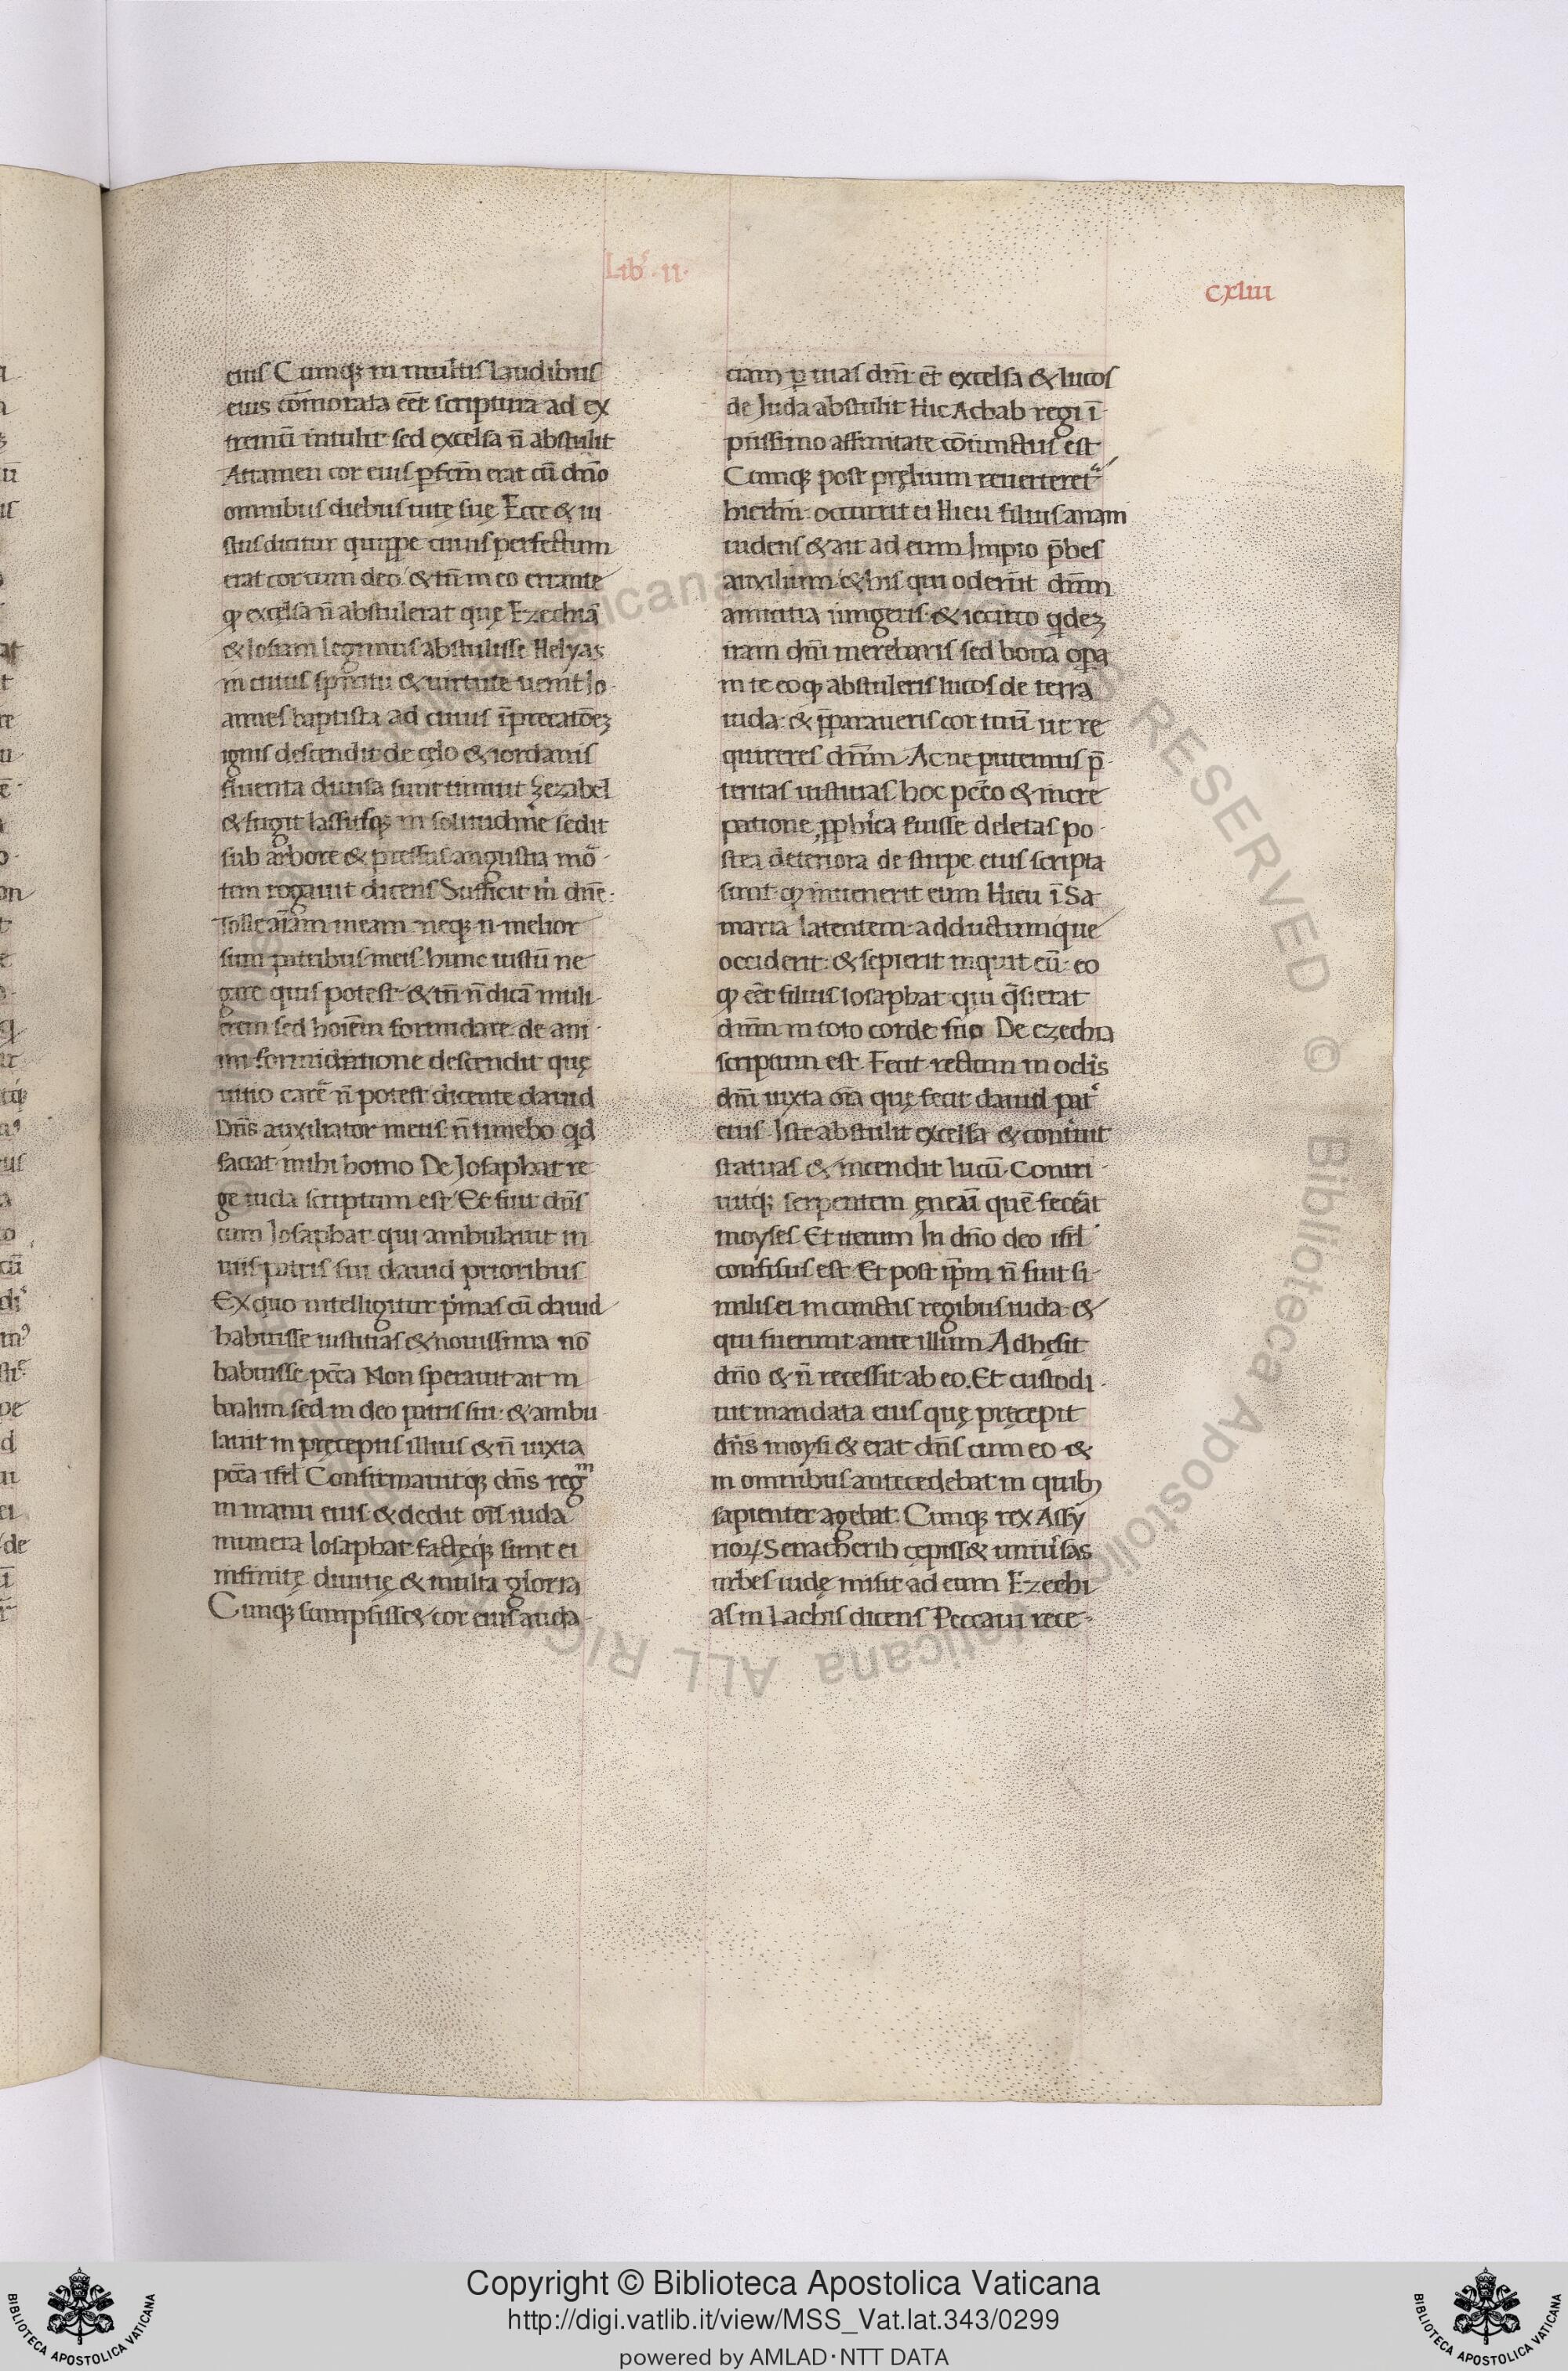 Lib̄· ii·
cxliii
eius Cumqꝫ in multis laudibus
eius cōmorata eēt scriptura ad ex
tremū intulit sed excelsa n̄ abstulit
Attamen cor eius ꝑfcm̄ erat cū dn̄o
omnibus diebus uitę suę Ecce & iu
stus dicitur quippe cuius perfectum
erat cor cum deo & tn̄ in eo errante
ꝙ excelsa n̄ abstulerat quę Ezechiā
& Iosiam legimus abstulisse Helyas
in cuius spiritu & uirtute uenit Io
annes baptista ad cuius īprecatōeꝫ
ignis descendit de cęlo & iordanis
fluenta diuisa sunt timuit Zezabel
& fugit lassusqꝫ in solitudine sedit
sub arbore & pressus angustia mō
tem rogauit dicens Sufficit m̄ dn̄e:
Tolle aīam meam neqꝫ n̄ melior
sum patribus meis hunc iustū ne
gare quis potest & tn̄ n̄ dicā muli
erem sed hoīem formidare de ani
mi formidatione descendit quę
uitio carē n̄ potest dicente dauid
Dn̄s auxiliator meus n̄ timebo qd
faciat mihi homo De Iosaphat re
ge iuda scriptum est Et fuit dn̄s
cum Iosaphat qui ambulauit in
uiis patris sui dauid prioribus
Ex quo intelligitur pͥmas cū dauid
habuisse iustitias & nouissima nō
habuisse pcc̄a Non sperauit ait in
baalim sed in deo patris sui & ambu
lauit in pręceptis illius & n̄ iuxta
pcc̄a isrl̄ Confirmauitqꝫ dn̄s regᵐ
in manu eius & dedit oīs iuda
munera Iosaphat factęqꝫ sunt ei
infinitę diuitię & multa gloria
Cunqꝫ sumpsiss& cor eius auda
ciam ꝑ uias dn̄i et̄ excelsa & lucos
de Iuda abstulit Hic Achab regi ī
piissimo affinitate cōiunctus est
Cumqꝫ post pręlium reuerteret᷑
hierlm̄ occurrit ei Hieu filius anam
uidens & ait ad eum Impio p̄bes
auxilium & his qui oderūt dn̄m
amicitia iungeris & iccirco qdeꝫ
iram dn̄i merebaris sed bona oꝑa
in te eoqꝫ abstuleris lucos de terra
iuda & p̄paraueris cor tuū ut re
quireres dn̄m Ac ne putemus p̄
teritas iustitias hoc pcc̄o & incre
patione ꝓphͥca fuisse deletas po
stea deteriora de stirpe eius scripta
sunt ꝙ inuenerit eum Hieu ī Sa
maria latentem adductumque
occiderit & sepierit inquit eū eo
ꝙ eēt filius Iosaphat qui q̄sierat
dn̄m in toto corde suo De ezechia
scriptum est Fecit rectum in oclis
dn̄i iuxta oīa quę fecit dauid patͬ
eius Iste abstulit excelsa & contriuit
statuas & incendit lucū Contri
uitqꝫ serpentem ęneū quē fecāt
moyses Et iterum In dn̄o deo isrl̄
confisus est Et post ip̄m n̄ fuit si
milis ei in cunctis regibus iuda &
qui fuerunt ante illum Adhęsit
dn̄o & n̄ recessit ab eo. Et custodi
uit mandata eius quę pręcepit
dn̄s moysi & erat dn̄s cum eo &
in omnibus antecedebat in quibꝫ
sapienter agebat Cunqꝫ rex Assy
rioꝝ Senacherib cępiss& uniuͥsas
urbes iudę misit ad eum Ezechi
as in Lachis dicens Peccaui rece
Copyright © Biblioteca Apostolica Vaticana
http://digi.vatlib.it/view/MSS_Vat.lat.343/0299
powered by AMLAD·NTT DATA